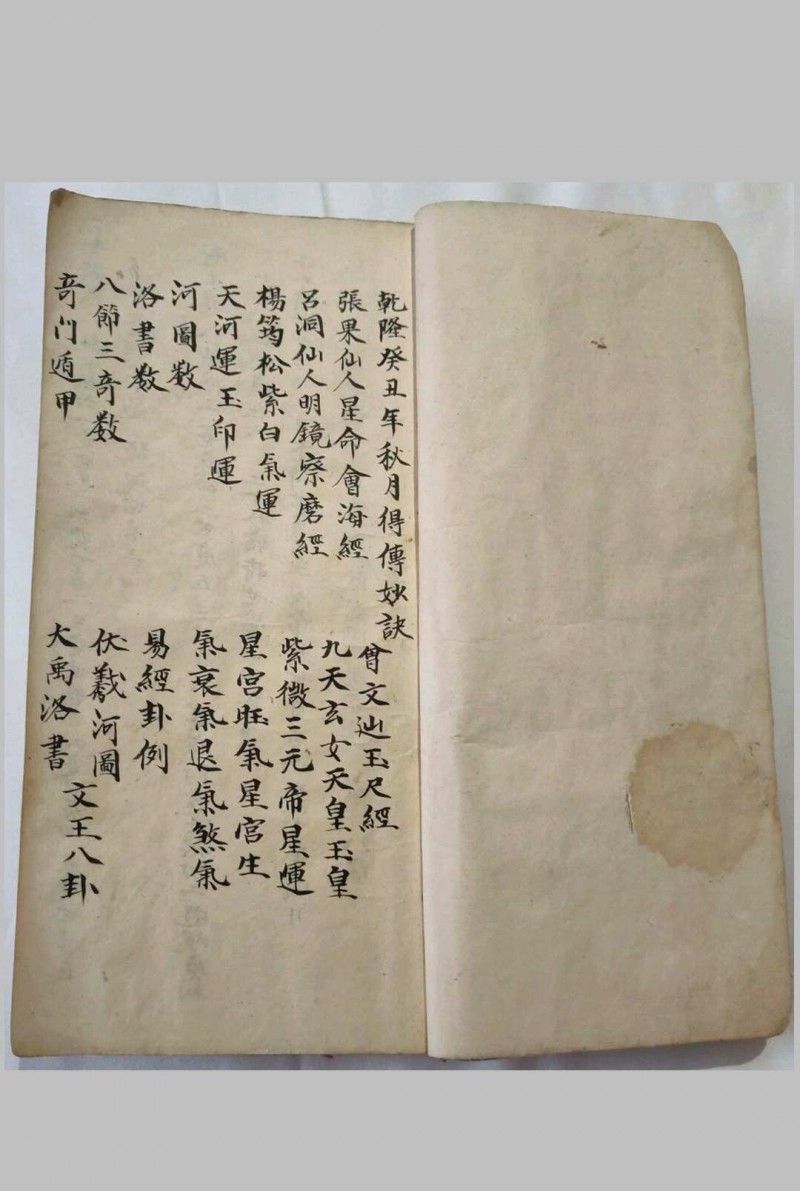 乾隆癸丑年秋月得傳妙訣
張果仙人星命會海經
呂洞仙人明鏡察磨經
楊筠松紫白氣運
天河運玉印運
河圖数
洛書数
八節三奇数
奇门遁甲
曾文辿玉尺經
九天玄女天皇玉皇
紫微三元帝星運
星宮旺氣星宮生
氣衰氣退氣煞氣
易經卦例
伏羲河圖
文王八卦
大禹洛書